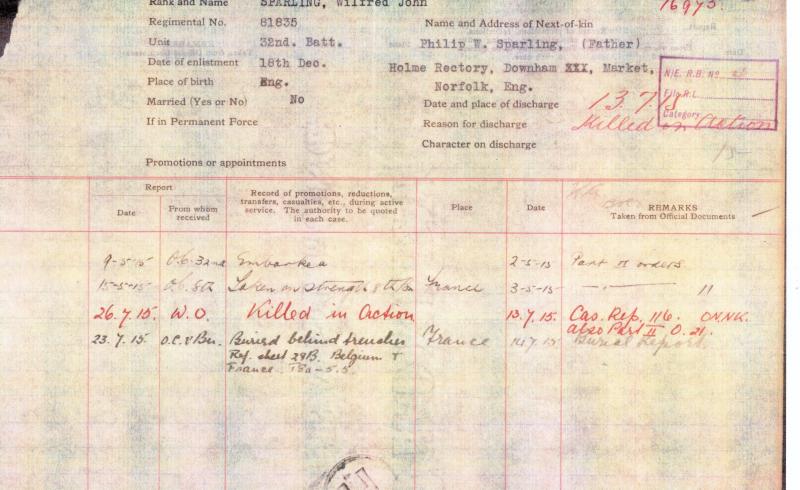 Rank and Name SPARLING, Wilfred John
16975.
Regimental No. 81835
Name and Address of Next-of-kin
Unit 32nd. Batt.
Philip W. Sparling, (Father)
Date of enlistment 18th Dec.
Holme Rectory, Downham XXX, Market,
Norfolk, Eng.
Place of birth Eng.
N/E. R.B. No.
File R.L.
Category
Married (Yes or No) No
Date and place of discharge 13.7.15
If in Permanent Force
Reason for discharge Killed in Action
Character on discharge
Promotions or appointments
Report
Date
From whom received
Record of promotions, reductions,
transfers, casualties, etc., during active
service. The authority to be quoted
in each case.
Place
Date
REMARKS
Taken from Official Documents
9-5-15 O.C. 32nd Embarked 2-5-15 Part II orders
15-5-15 O.C. 8th Taken on strength 8th Bn France 3-5-15 — " — 11
26.7.15. W.O. Killed in Action 13.7.15. Cas. Rep. 116.
also Part II O. 21.
23.7.15 O.C. 8 Bn. Buried behind trenches France 14.7.15 Burial Report.
Ref. sheet 28B. Belgium &
France